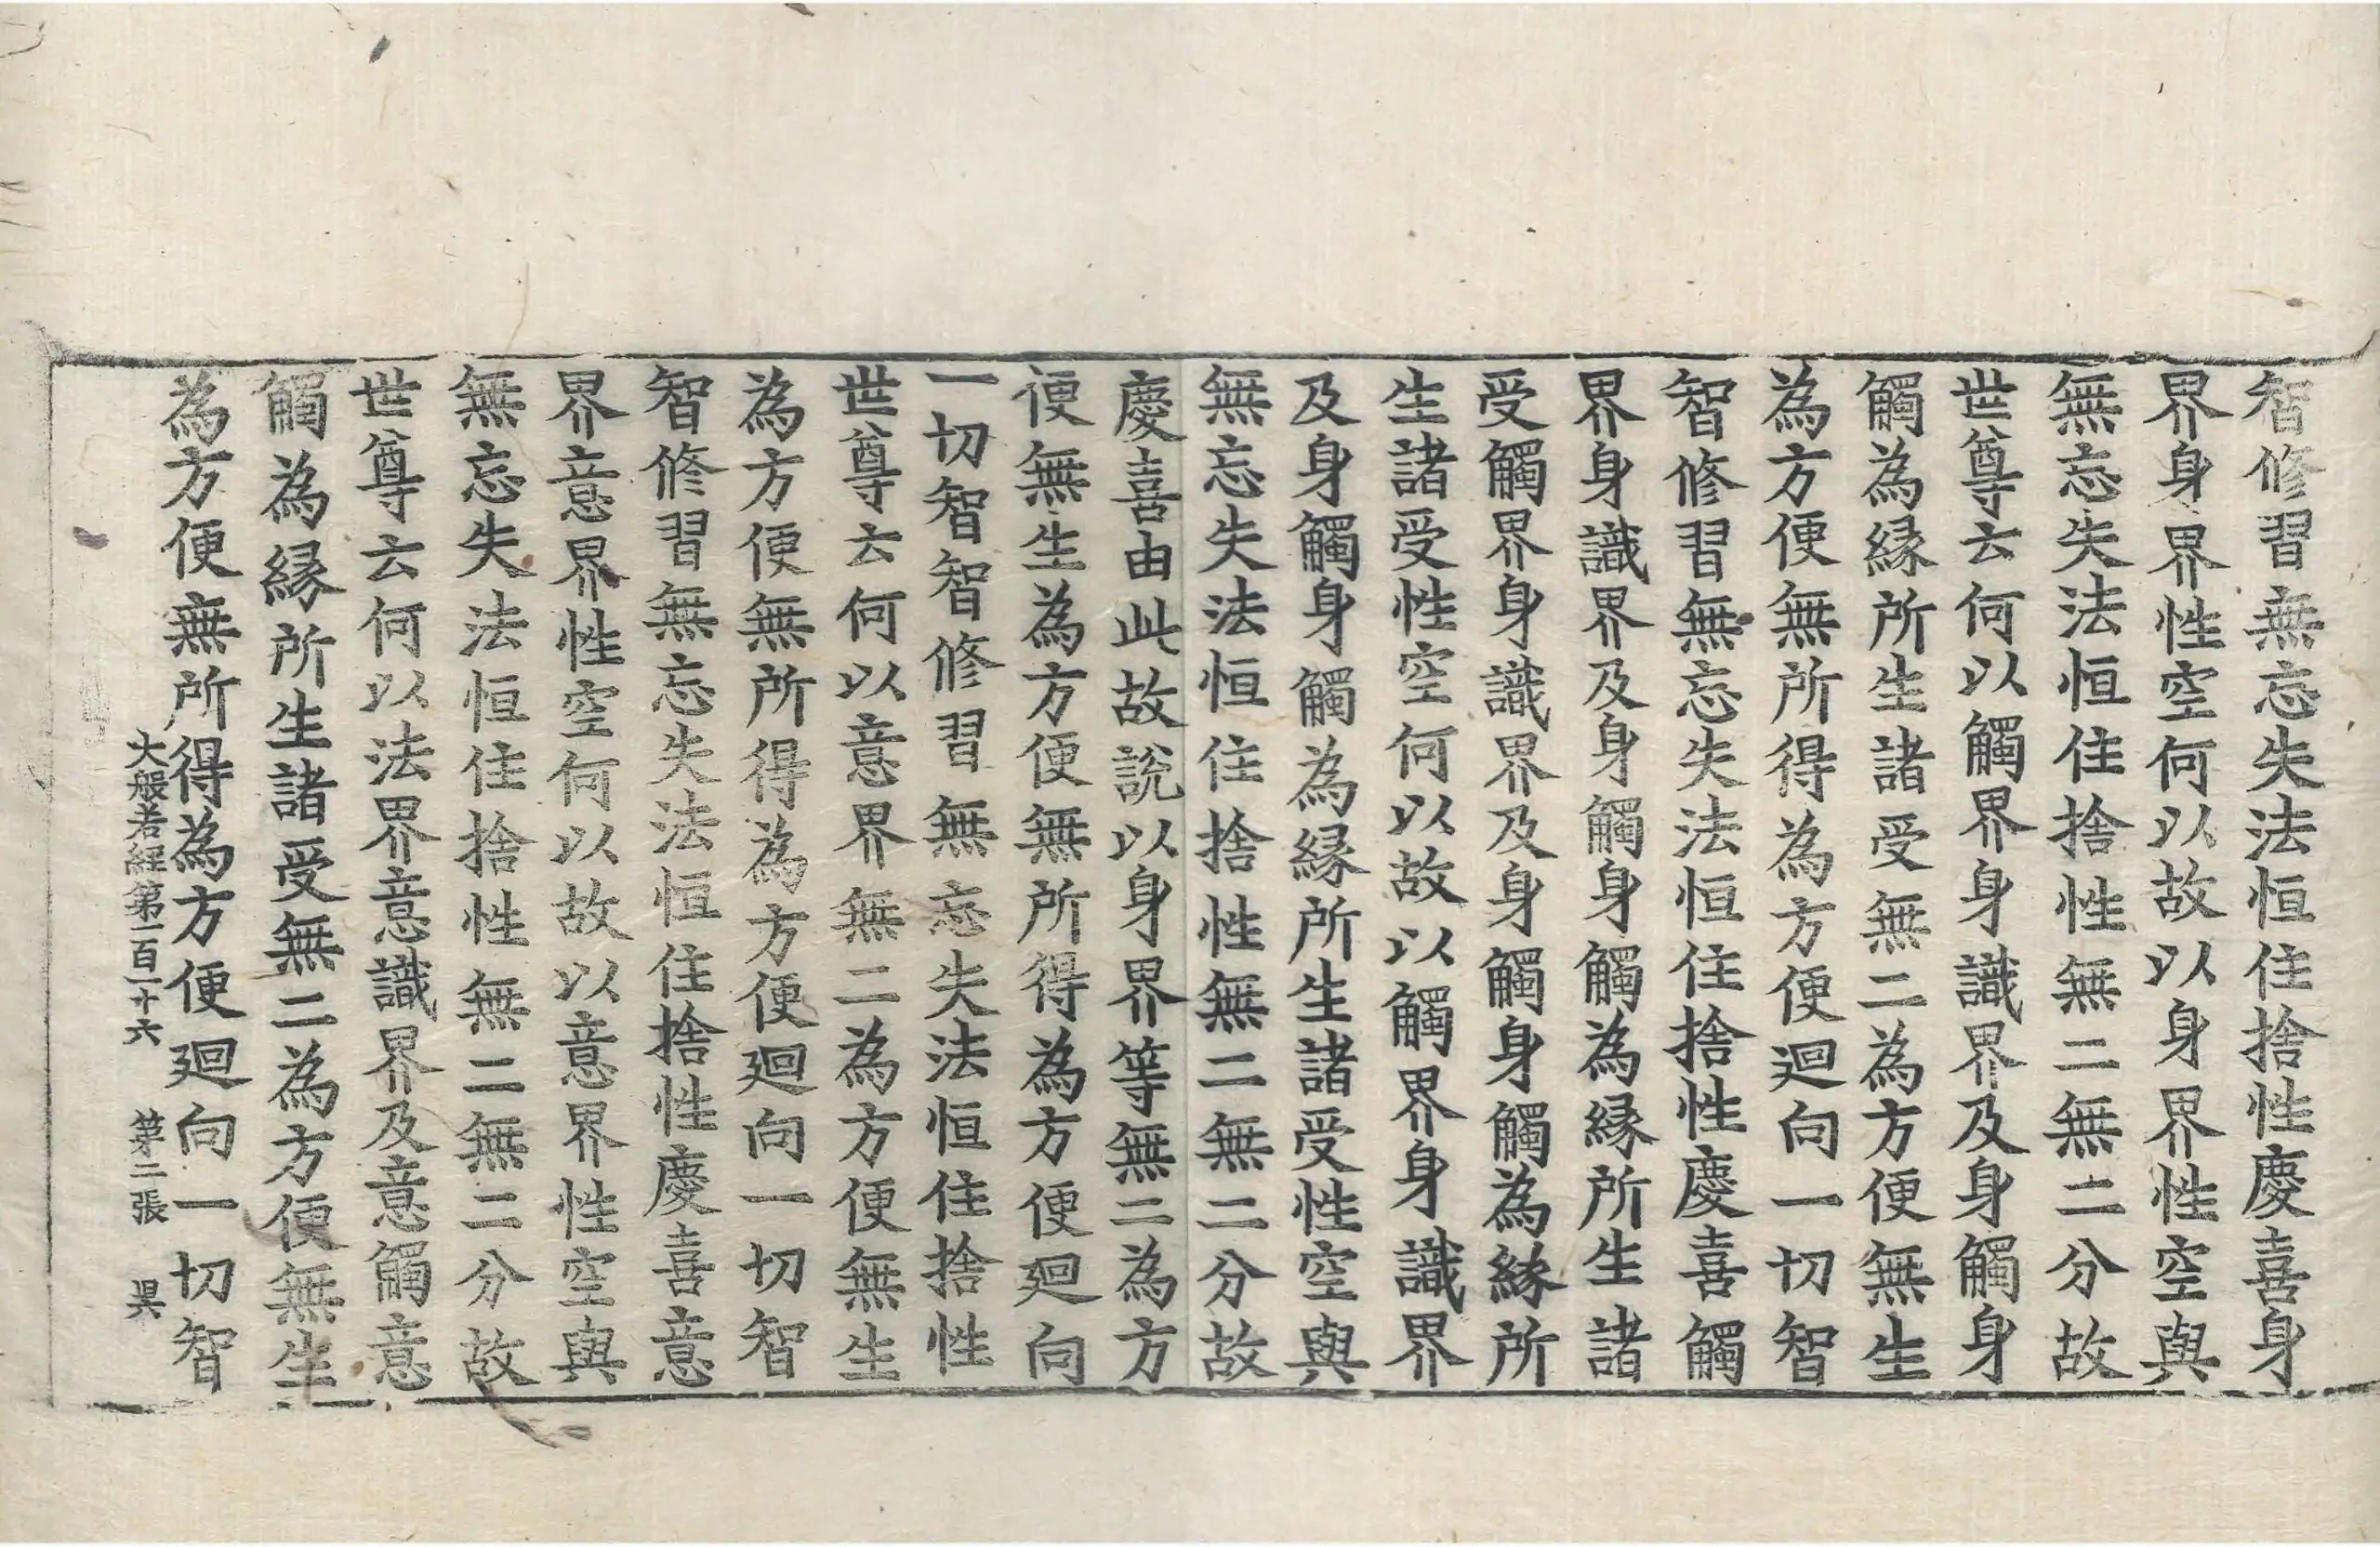 智修習無忘失法恒住捨性慶喜身
界身界性空何以故以身界性空與
無忘失法恒住捨性無二無二分故
世尊云何以觸界身識界及身觸身
觸為緣所生諸受無二為方便無生
為方便無所得為方便迴向一切智
智修習無忘失法恒住捨性慶喜觸
界身識界及身觸身觸為緣所生諸
受觸界身識界及身觸身觸為緣所
生諸受性空何以故以觸界身識界
及身觸身觸為緣所生諸受性空與
無忘失法恒住捨性無二無二分故
慶喜由此故說以身界等無二為方
便無生為方便無所得為方便迴向
一切智智修習無忘失法恒住捨性
世尊云何以意界無二為方便無生
為方便無所得為方便迴向一切智
智修習無忘失法恒住捨性慶喜意
界意界性空何以故以意界性空與
無忘失法恒住捨性無二無二分故
世尊云何以法界意識界及意觸意
觸為緣所生諸受無二為方便無生
為方便無所得為方便迴向一切智
大般若經第一百一十六 第二張 昃